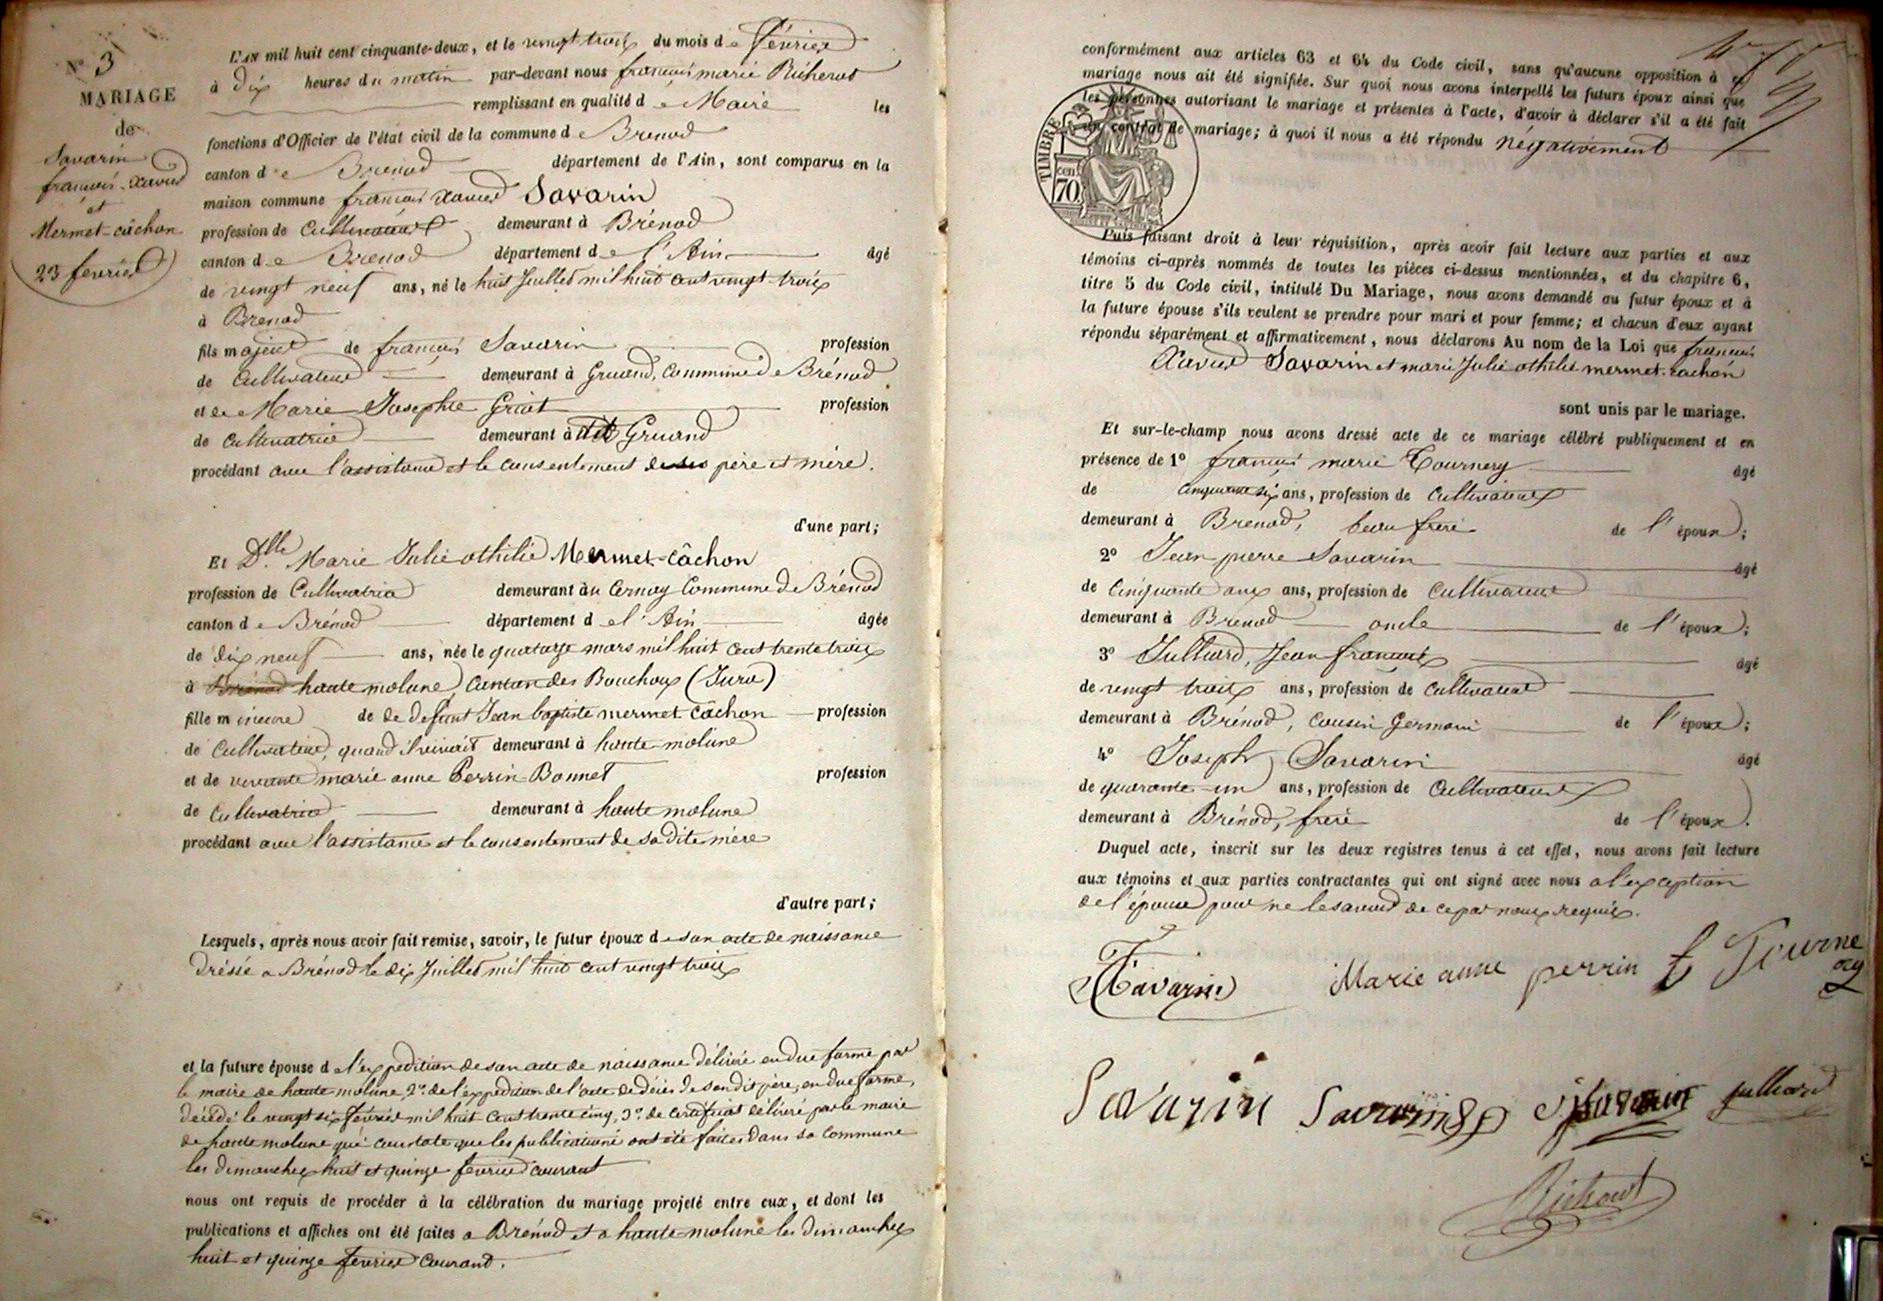 N° 3
MARIAGE
de
Savarin
françois-xavier
et
Mermet-câchon
23 février
L'AN mil huit cent cinquante-deux, et le vingt trois du mois de février
à dix heures du matin par-devant nous françois marie Richerot
remplissant en qualité de Maire les
fonctions d'Officier de l'état civil de la commune de Brenod
canton de Brenod département de l'Ain, sont comparus en la
maison commune françois xavier Savarin
profession de Cultivateur demeurant à Brénod
canton de Brenod département de l'Ain âgé
de vingt neuf ans, né le huit Juillet mil huit cent vingt-trois
à Brenod
fils majeur de françois Savarin profession
de Cultivateur demeurant à Gruand, Commune de Brénod
et de Marie Josephte Griot profession
de Cultivatrice demeurant à dit Gruand
procédant avec l'assistance et le consentement de ses père et mère.
d'une part;
Et Dlle. Marie Julie othilie Mermet-câchon
profession de Cultivatrice demeurant au Cernay Commune de Brénod
canton de Brénod département de l'Ain âgée
de dix neuf ans, née le quatorze mars mil huit cent trente trois
à Brénod haute molune, Canton des Bouchoux (Jura)
fille mineure de de defunt Jean baptiste mermet-câchon profession
de Cultivateur, quand il vivait demeurant à haute-molune
et de vivante marie anne Perrin Bonnet profession
de Cultivatrice demeurant à haute molune
procédant avec l'assistance et le consentement de sa dite mère
d'autre part;
Lesquels, après nous avoir fait remise, savoir, le futur époux de son acte de naissance
dréssé a Brénod le dix Juillet mil huit cent vingt trois
et la future épouse de l'expedition de son acte de naissance délivré en due forme par
le maire de haute molune, 2° de l'expedition de l'acte de décès de son dit père, en due forme,
décédé le vingt six février mil huit cent trente cinq, 3° de certificat délivré par le maire
de haute molune qui constate que les publications ont été faites dans sa commune
les dimanches huit et quinze février courant
nous ont requis de procéder à la célébration du mariage projeté entre eux, et dont les
publications et affiches ont été faites a Brénod et a haute-molune les dimanches
huit et quinze février courant.
conformément aux articles 63 et 64 du Code civil, sans qu'aucune opposition à ce
mariage nous ait été signifiée. Sur quoi nous avons interpellé les futurs époux ainsi que
les personnes autorisant le mariage et présentes à l'acte, d'avoir à déclarer s'il a été fait
un contrat de mariage; à quoi il nous a été répondu négativement
TIMBRE
70 cen
Puis faisant droit à leur réquisition, après avoir fait lecture aux parties et aux
témoins ci-après nommés de toutes les pièces ci-dessus mentionnées, et du chapitre 6,
titre 5 du Code civil, intitulé Du Mariage, nous avons demandé au futur époux et à
la future épouse s'ils veulent se prendre pour mari et pour femme; et chacun d'eux ayant
répondu séparément et affirmativement, nous déclarons Au nom de la Loi que françois
Xavier Savarin et marie Julie othilie mermet-cachon
sont unis par le mariage.
Et sur-le-champ nous avons dressé acte de ce mariage célébré publiquement et en
présence de 1° françois marie Tournery âgé
de Cinquante six ans, profession de Cultivateur
demeurant à Brenod, beau frère de l'époux;
2° Jean pierre Savarin âgé
de Cinquante ans, profession de Cultivateur
demeurant à Brenod oncle de l'époux;
3° Julliard, Jean françois âgé
de vingt trois ans, profession de Cultivateur
demeurant à Brénod, cousin germain de l'époux;
4° Joseph Savarin âgé
de quarante-un ans, profession de Cultivateur
demeurant à Brénod, frère de l'époux.
Duquel acte, inscrit sur les deux registres tenus à cet effet, nous avons fait lecture
aux témoins et aux parties contractantes qui ont signé avec nous a l'exception
de l'épouse pour ne le savoir de ce par nous requis.
Savarin Marie anne perrin f Tournery
Savarin Savarin J Savarin Julliard
Richerot